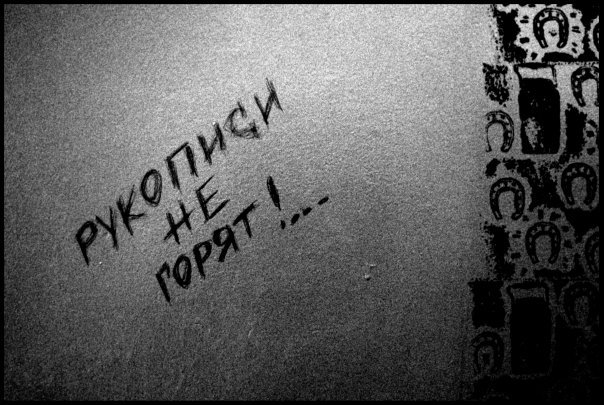 РУКОПИСИ
НЕ
ГОРЯТ!...